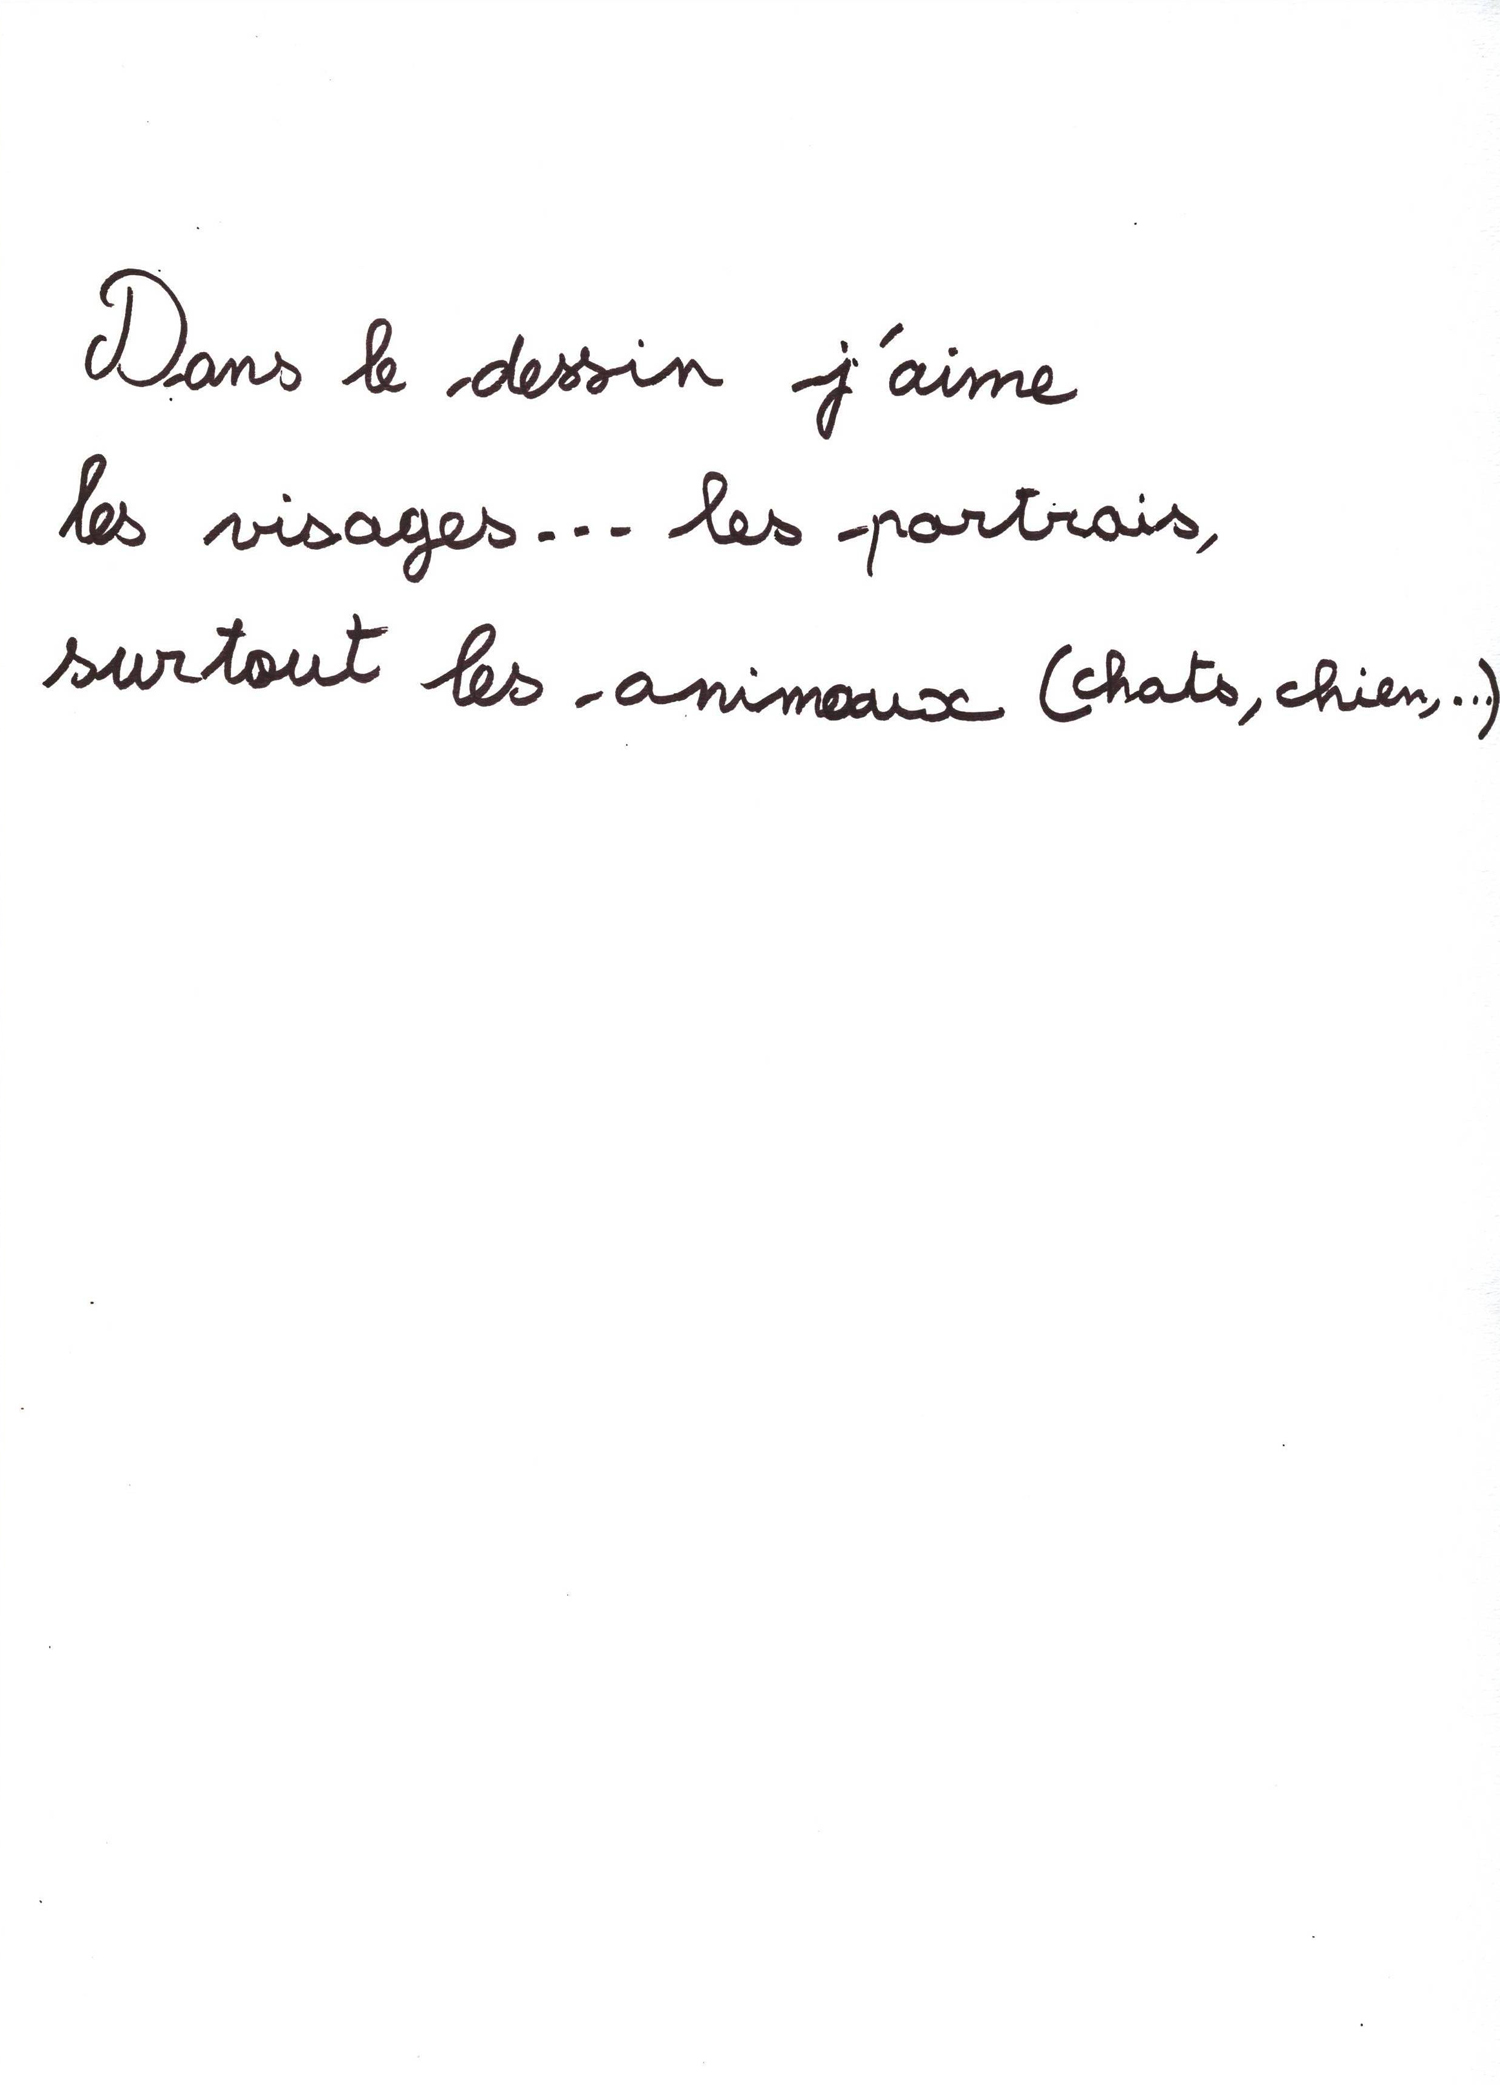 Dans le dessin j'aime
les visages... les portrais,
surtout les animaux (chats, chien,...)